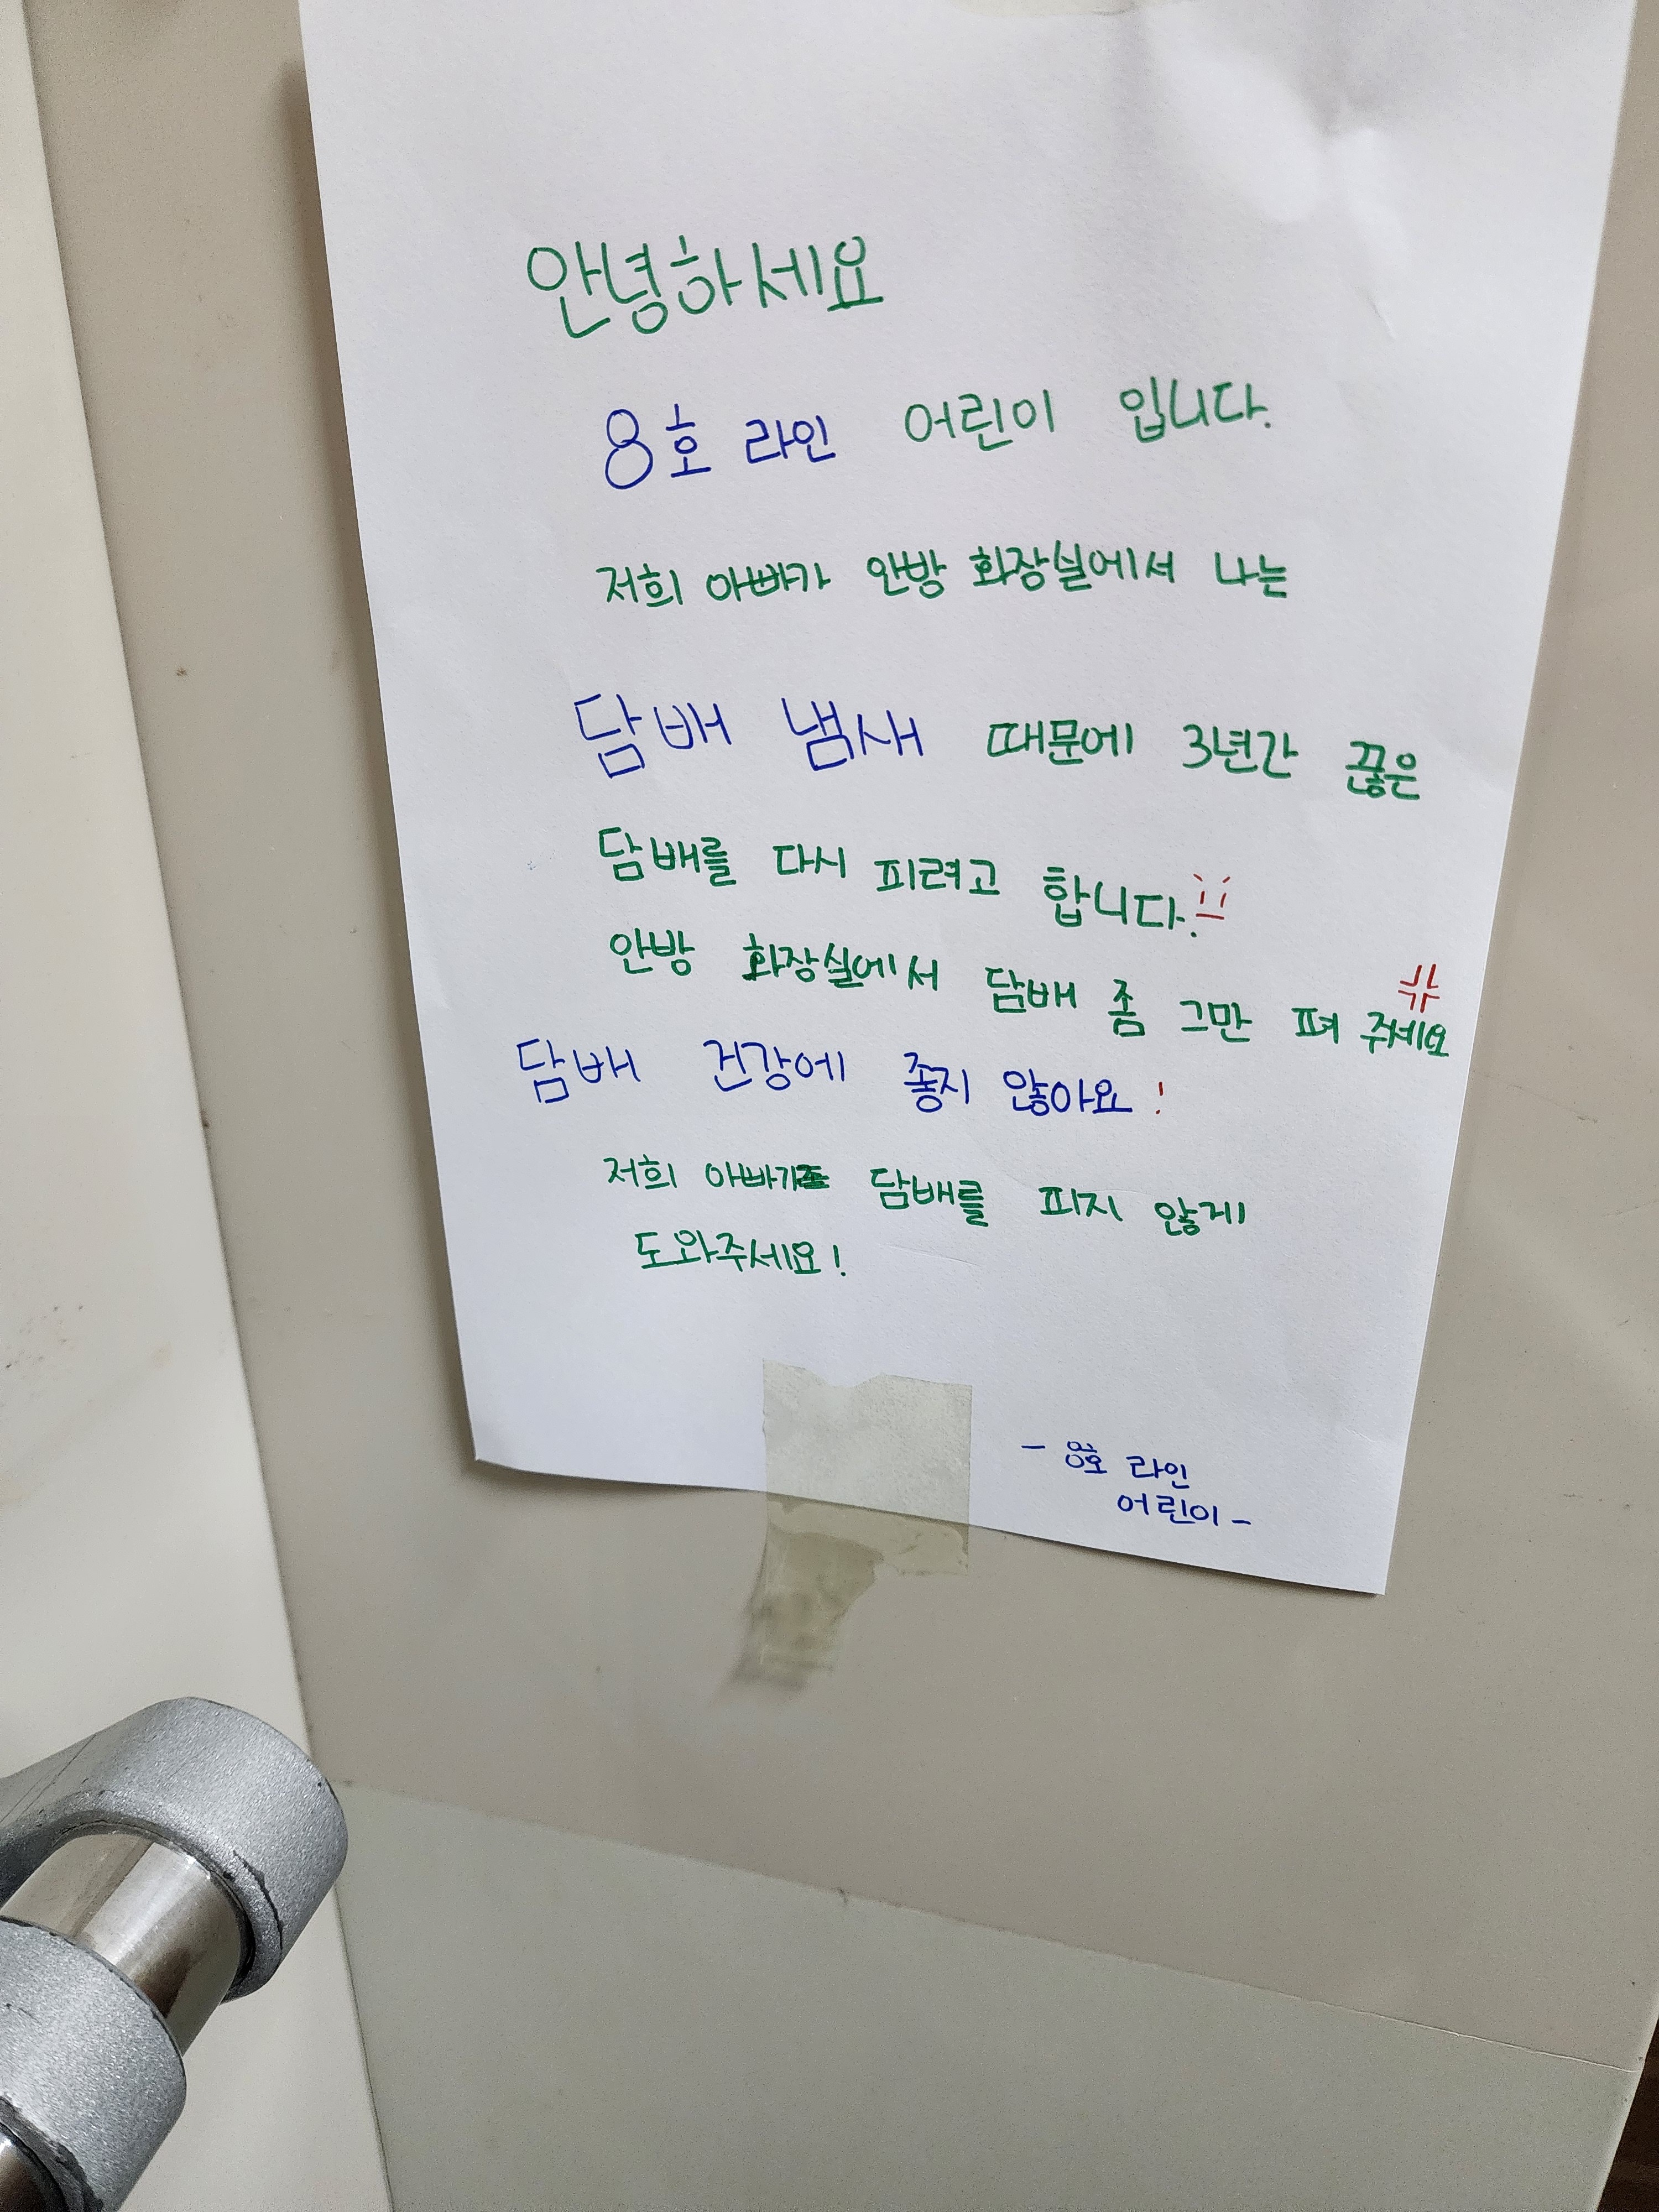 안녕하세요
8호 라인 어린이 입니다.
저희 아빠가 안방 화장실에서 나는
담배 냄새 때문에 3년간 끊은
담배를 다시 피려고 합니다.
안방 화장실에서 담배 좀 그만 펴 주세요
담배 건강에 좋지 않아요!
저희 아빠가 담배를 피지 않게
도와주세요!
- 8호 라인
어린이 -